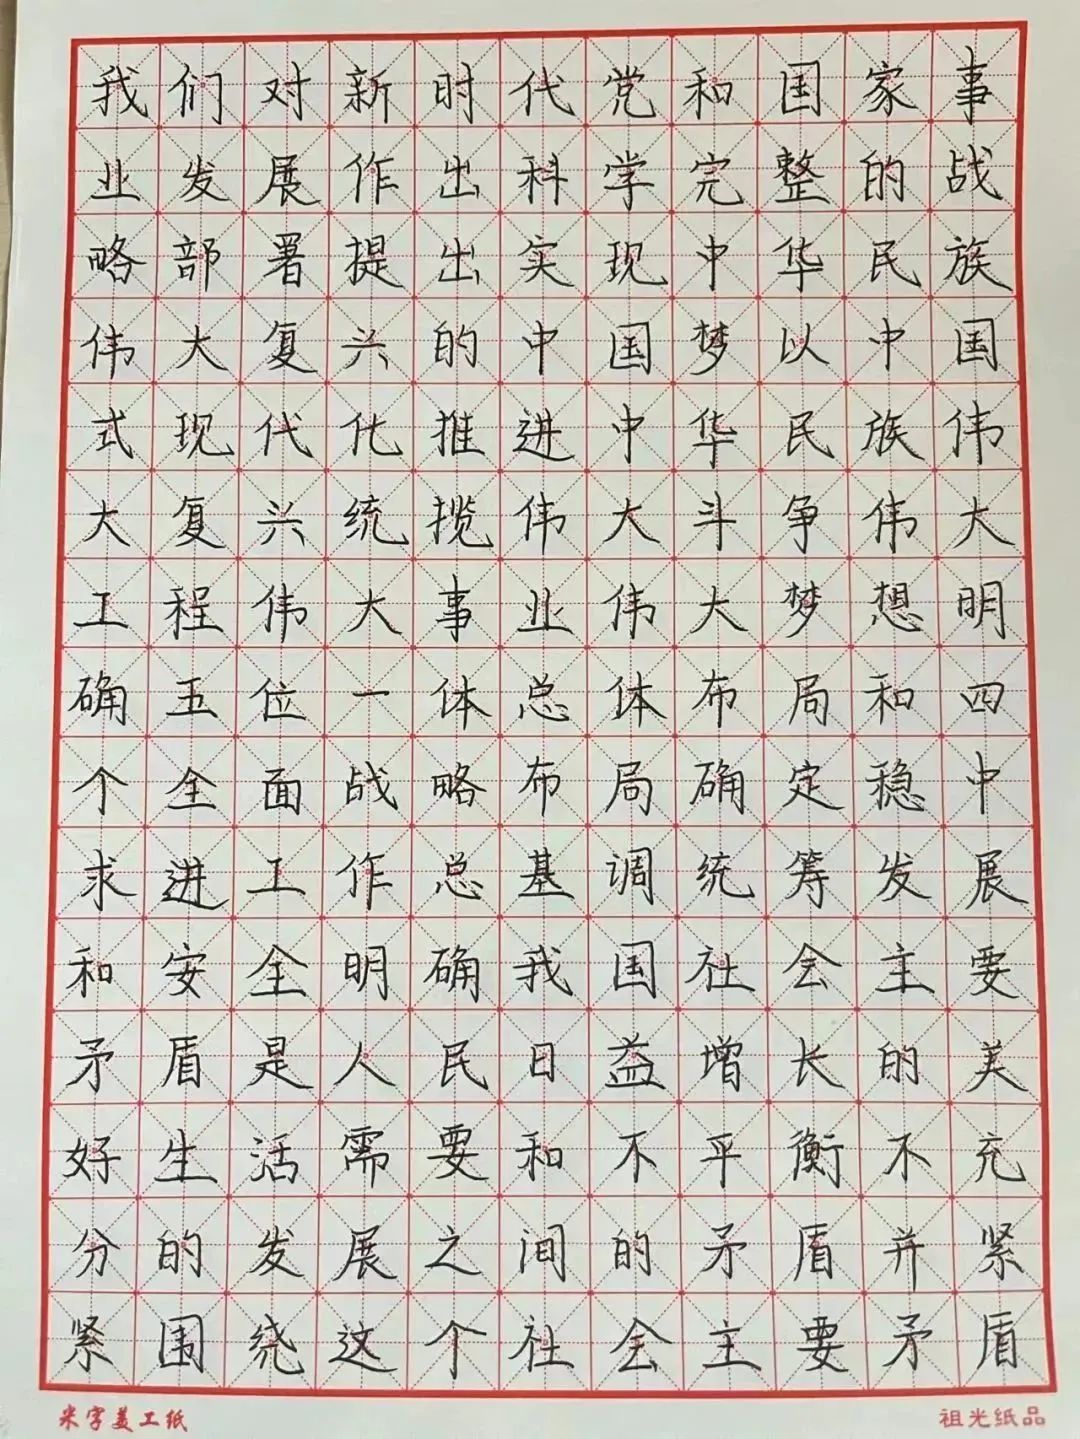 我们对新时代党和国家事
业发展作出科学完整的战
略部署提出实现中华民族
伟大复兴的中国梦以中国
式现代化推进中华民族伟
大复兴统揽伟大斗争伟大
工程伟大事业伟大梦想明
确五位一体总体布局和四
个全面战略布局确定稳中
求进工作总基调统筹发展
和安全明确我国社会主要
矛盾是人民日益增长的美
好生活需要和不平衡不充
分的发展之间的矛盾并紧
紧围绕这个社会主要矛盾
米字美工纸
祖光纸品